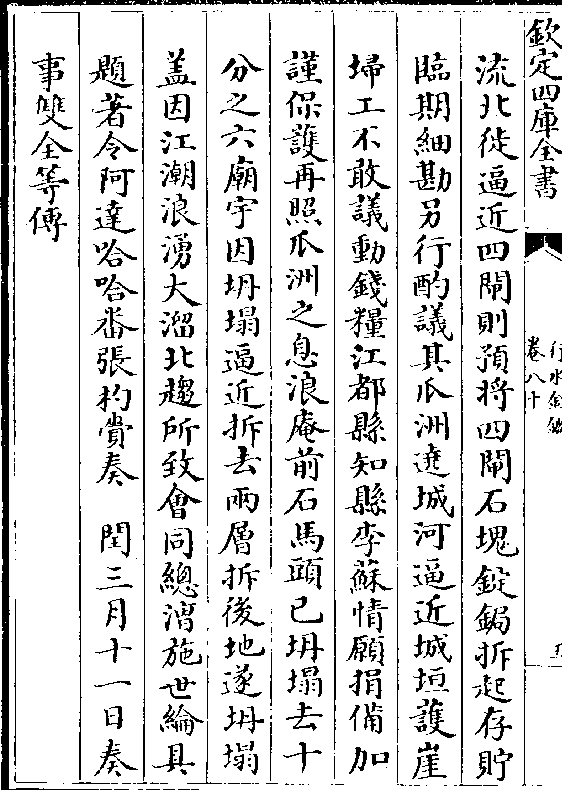 欽定四庫全書
行水金鑑
卷八十
流北徙逼近四閘則預將四閘石塊錠鋦拆起存貯
臨期細勘另行酌議其瓜洲遶城河逼近城垣護崖
埽工不敢議動錢糧江都縣知縣李蘇情願捐備加
謹保護再照瓜洲之息浪庵前石馬頭已坍塌去十
分之六廟宇因坍塌逼近拆去兩層拆後地遂坍塌
盖因江潮浪湧大溜北趨所致會同總漕施世綸具
題著令阿達哈哈番張杓賫奏　閏三月十一日奏
事雙全等傳